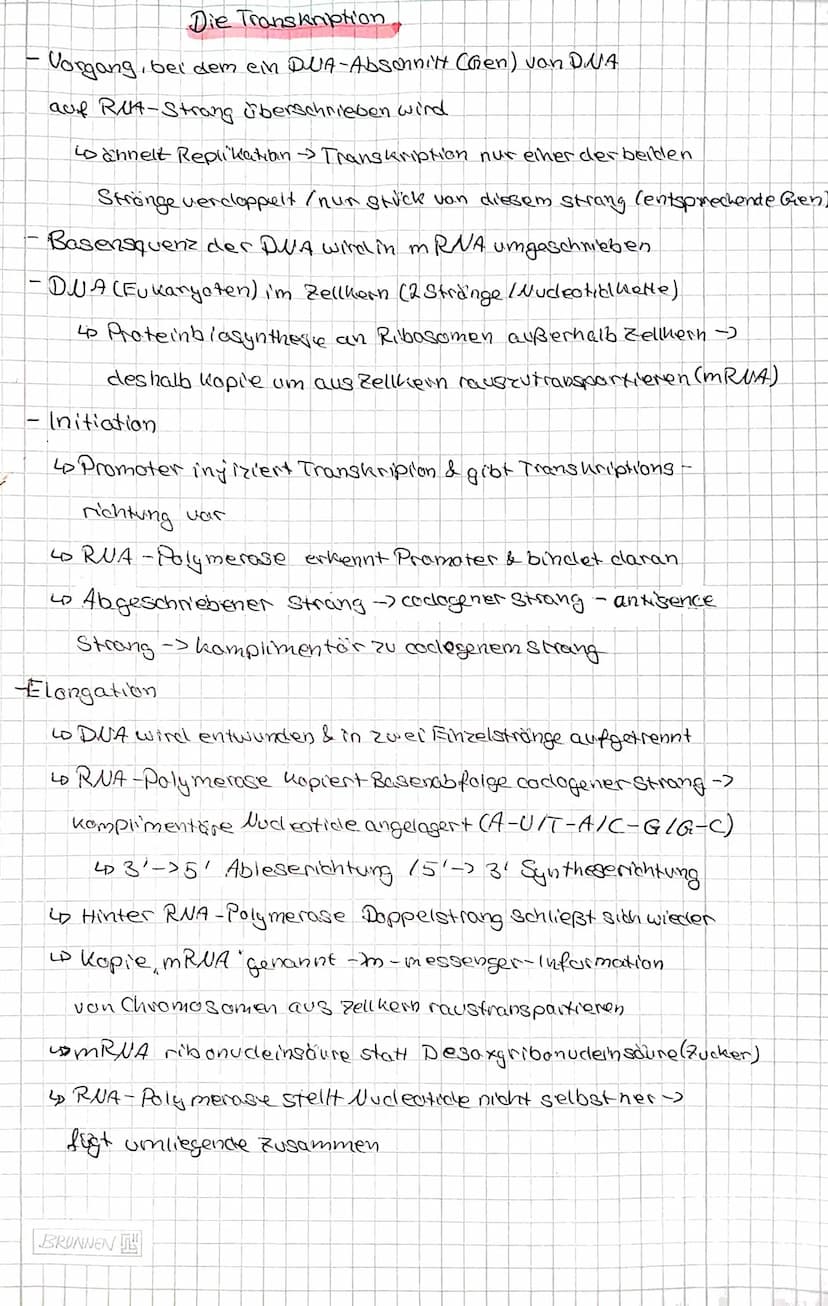 Die Transkription
- Vorgang, bei dem ein DNA-Abschnitt (Gen) von DNA
auf RNA-Strang überschrieben wird
↳ ähnelt Replikation -> Transkription nur einer der beiden
Stränge verdoppelt / nur Stück von diesem Strang (entsprechende Gen)
- Basensquenz der DNA wird in mRNA umgeschrieben
- DNA (Eukaryoten) im Zellkern (2 Stränge / Nucleotidkette)
↳ Proteinbiosynthese an Ribosomen außerhalb Zellkern ->
deshalb Kopie um aus Zellkern rauszutransportieren (mRNA)
- Initiation
↳ Promoter injiziert Transkripion & gibt Transkriptions-
richtung vor
↳ RNA-Polymerase erkennt Promoter & bindet daran
↳ Abgeschriebener Strang -> codogener Strang - antisence
Strang -> komplimentär zu codogenem Strang
- Elongation
↳ DNA wird entwunden & in zwei Einzelstränge aufgetrennt
↳ RNA-Polymerase kopiert Basenabfolge codogener Strang ->
komplimentäre Nucleotide angelagert (A-U/T-A/C-G/G-C)
↳ 3'->5' Ableserichtung / 5'-> 3' Syntheserichtung
↳ Hinter RNA-Polymerase Doppelstrang schließt sich wieder
↳ Kopie „mRNA" genannt -> m-messenger-Information
von Chromosomen aus Zellkern raustransportieren
↳ mRNA ribonucleinsäure statt Desoxyribonucleinsäure (Zucker)
↳ RNA-Polymerase stellt Nucleotide nicht selbst her ->
fügt umliegende zusammen
BRUNNEN